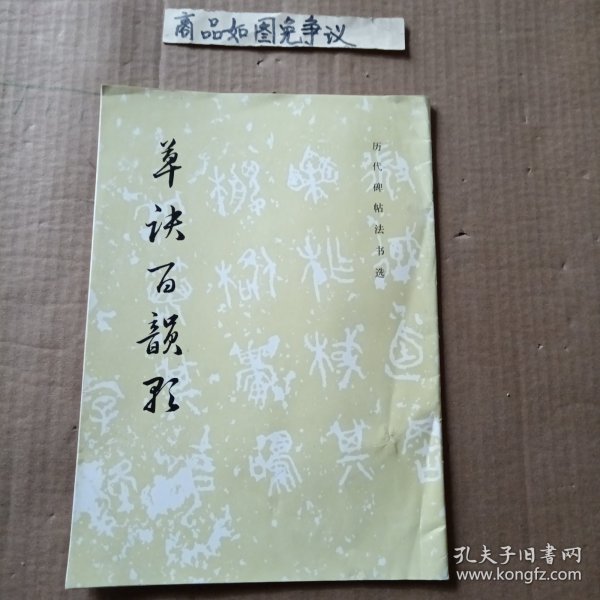 商品如图免争议
历代碑帖法书选
草诀百韵歌
孔夫子旧书网
www.kongfz.com